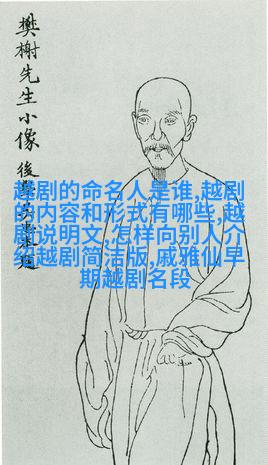 樊榭先生小像
後學
越剧的命名人是谁,越剧
的内容和形式有哪些,越
剧说明文,怎样向别人介
绍越剧简洁版,戚雅仙早
期越剧名段